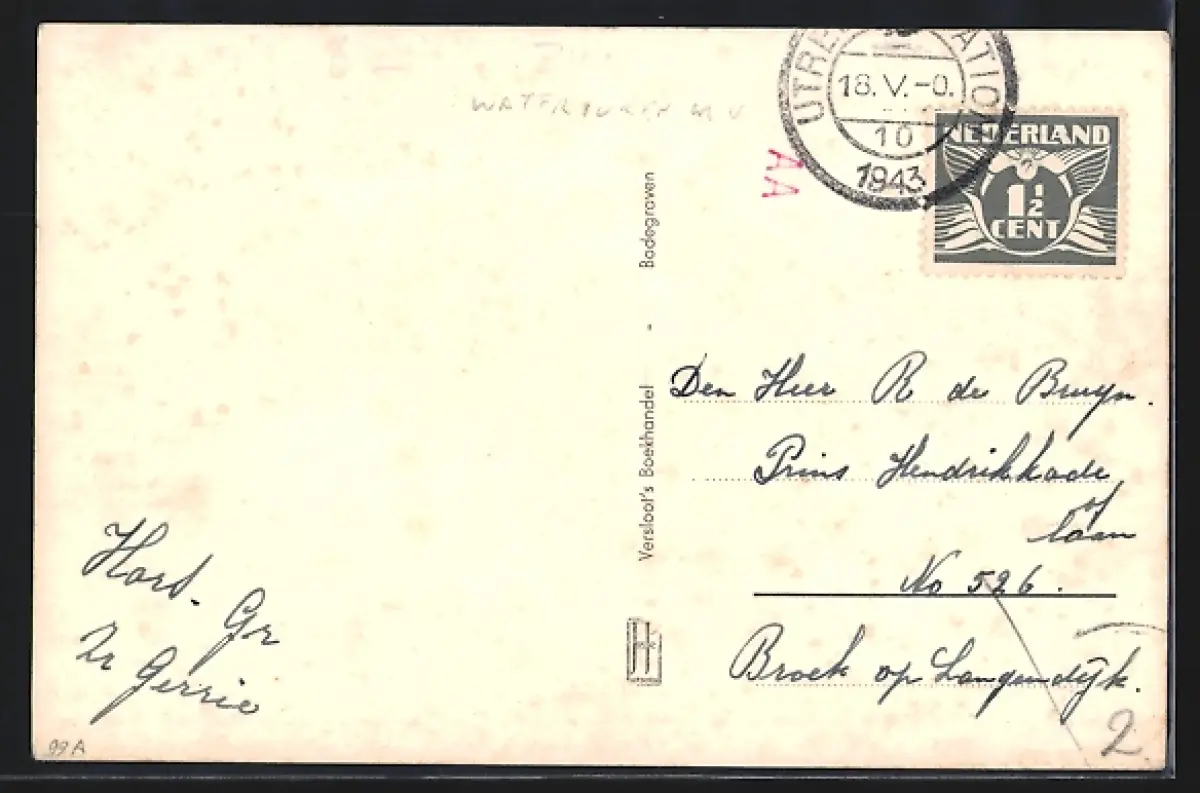 UTRE ATION
18.V.-0.
10
1943
NEDERLAND
1½
CENT
AA
Versloot's Boekhandel - Bodegraven
Den Heer R de Bruyn.
Prins Hendrikkade
of
laan
No 526.
Broek op Langendijk.
2
Hart. Gr
Zr Gerrie
H
99A